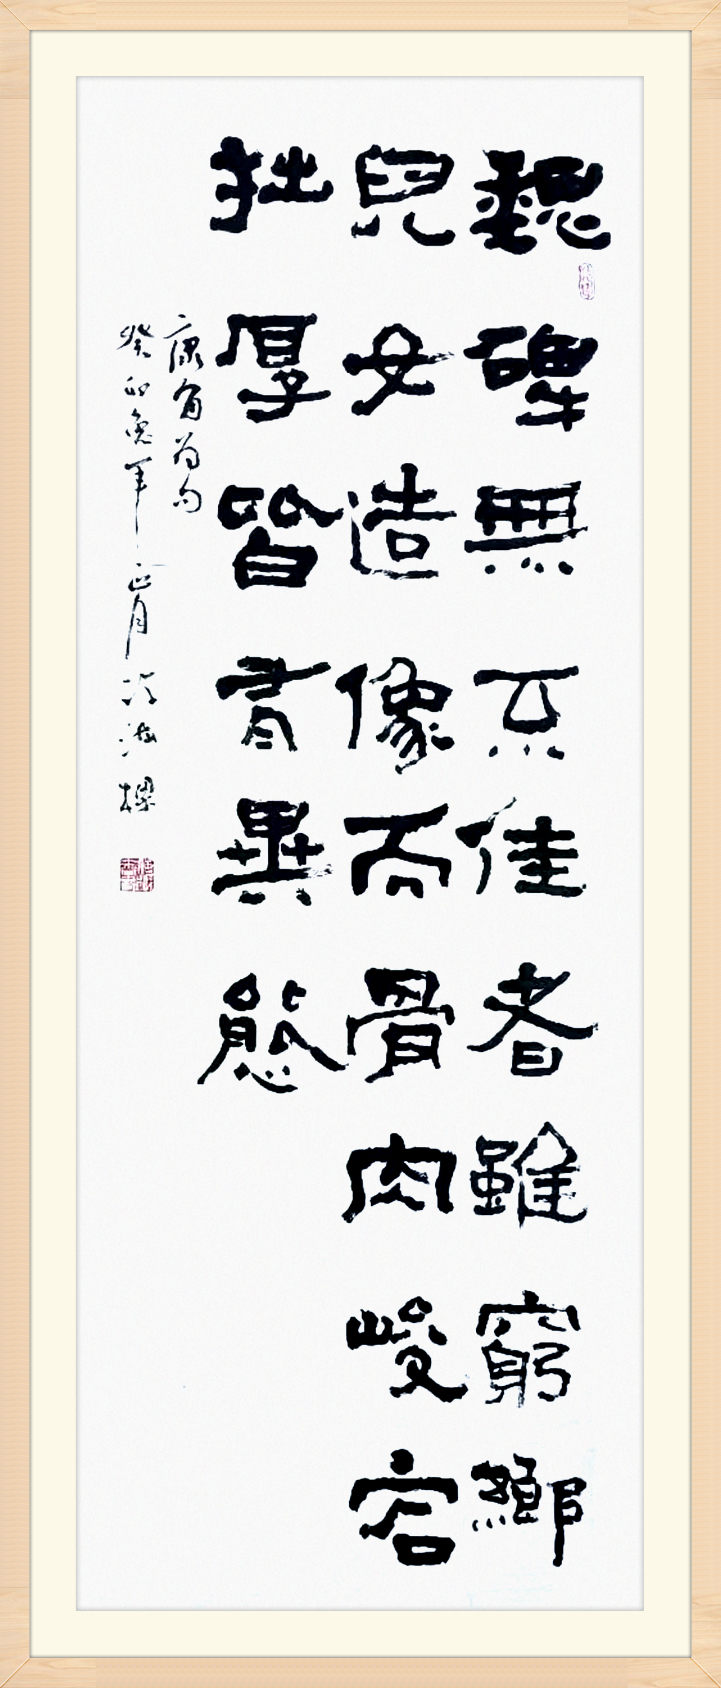 魏碑無不佳者雖窮鄉
兒女造像而骨肉峻宕
拙厚皆有異態
康有为句
癸卯兔年正月